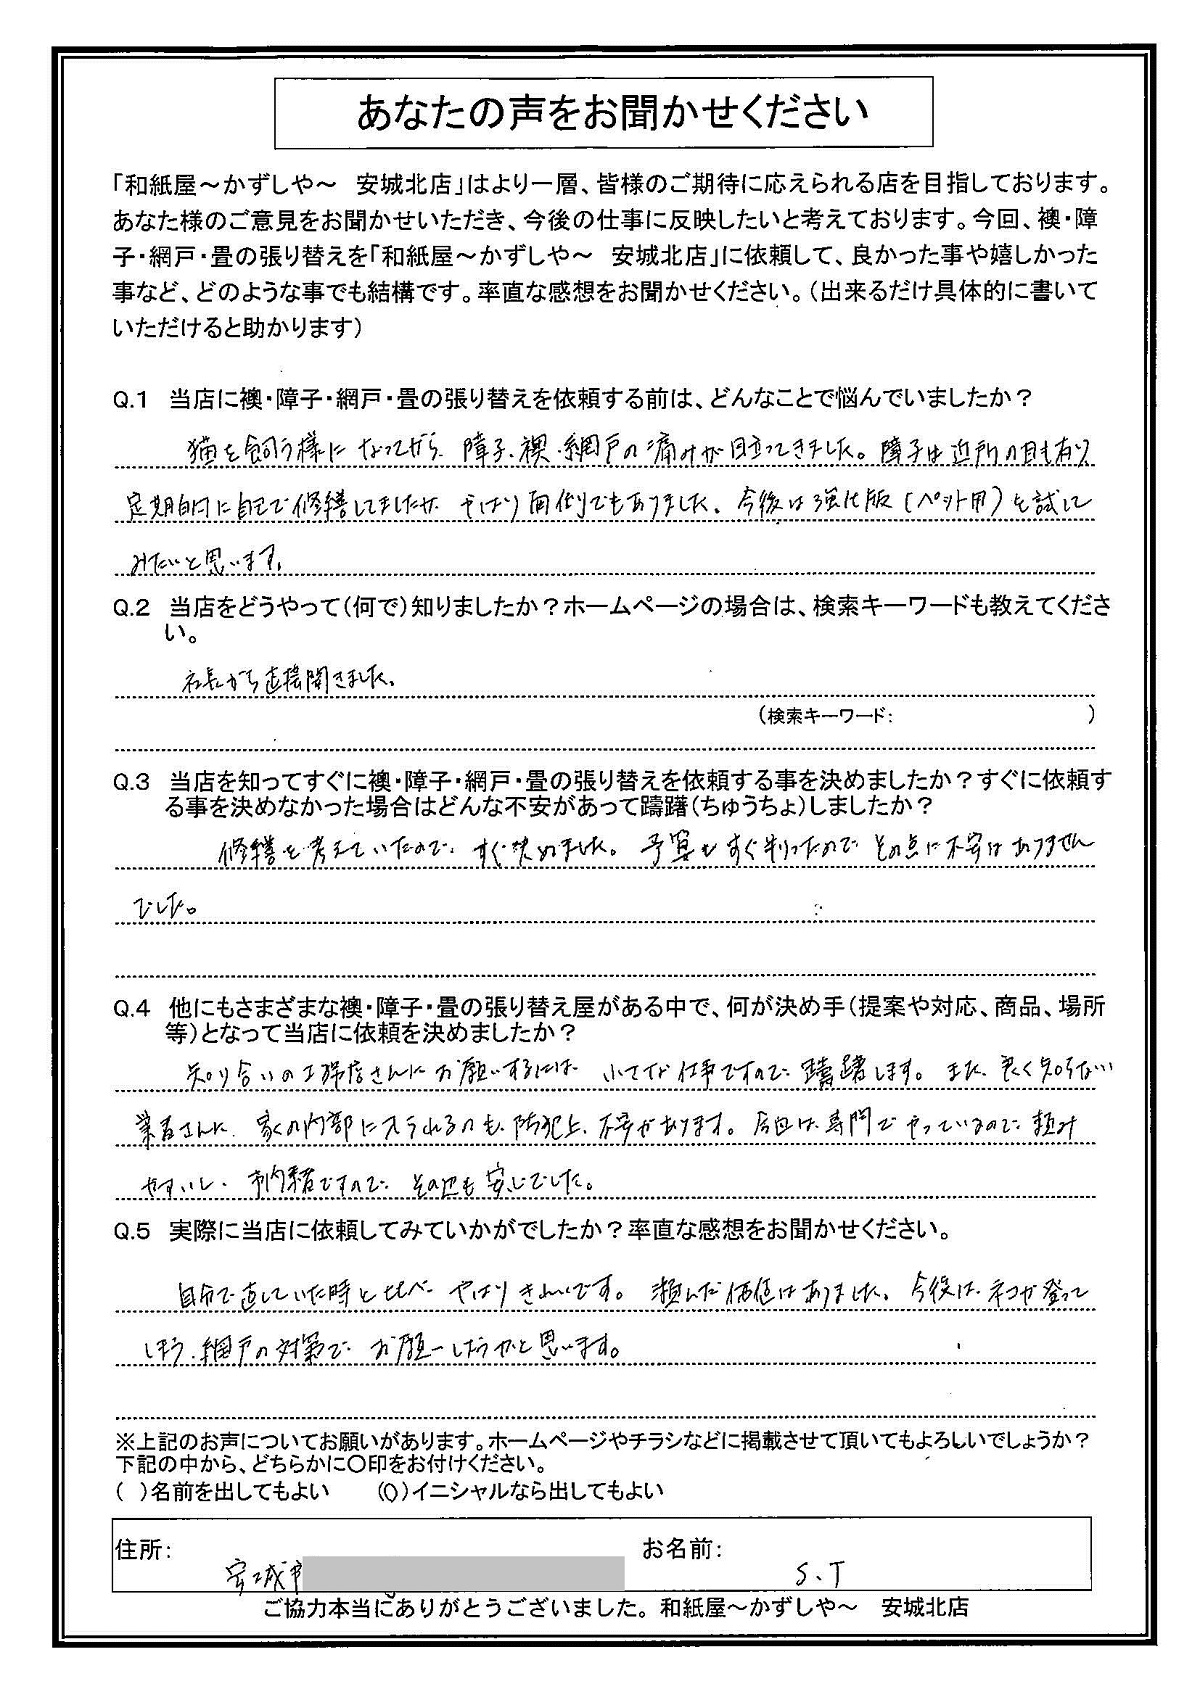 あなたの声をお聞かせください
「和紙屋～かずしや～　安城北店」はより一層、皆様のご期待に応えられる店を目指しております。
あなた様のご意見をお聞かせいただき、今後の仕事に反映したいと考えております。今回、襖・障
子・網戸・畳の張り替えを「和紙屋～かずしや～　安城北店」に依頼して、良かった事や嬉しかった
事など、どのような事でも結構です。率直な感想をお聞かせください。（出来るだけ具体的に書いて
いただけると助かります）
Q.1　当店に襖・障子・網戸・畳の張り替えを依頼する前は、どんなことで悩んでいましたか？
猫を飼う様になってから、障子、襖、網戸の痛みが目立ってきました。障子は近所の目も有り
定期的に自宅で修繕してましたが、やはり面倒でもありました。今後は強化版（ペット用）を試して
みたいと思います。
Q.2　当店をどうやって（何で）知りましたか？ホームページの場合は、検索キーワードも教えてくださ
い。
社長から直接聞きました。
（検索キーワード：　　　　　　　　　　）
Q.3　当店を知ってすぐに襖・障子・網戸・畳の張り替えを依頼する事を決めましたか？すぐに依頼す
る事を決めなかった場合はどんな不安があって躊躇（ちゅうちょ）しましたか？
修繕を考えていたので、すぐ決めました。予算もすぐ判ったので その点に不安はありません
でした。
Q.4　他にもさまざまな襖・障子・畳の張り替え屋がある中で、何が決め手（提案や対応、商品、場所
等）となって当店に依頼を決めましたか？
知り合いの工務店さんにお願いするには 小さな仕事ですので 躊躇します。また、良く知らない
業者さんに、家の内部に入られるのも、防犯上、不安があります。今回は、専門でやっているので、頼み
やすいし、予約ですので、その辺も安心でした。
Q.5　実際に当店に依頼してみていかがでしたか？率直な感想をお聞かせください。
自分で直していた時と比べ やはりきれいです。頼んだ価値はありました。今後は、ネコが登って
しまう、網戸の対策で お願いしようかと思います。
※上記のお声についてお願いがあります。ホームページやチラシなどに掲載させて頂いてもよろしいでしょうか？
下記の中から、どちらかに〇印をお付けください。
（　）名前を出してもよい　　（〇）イニシャルなら出してもよい
住所：　　　お名前：
安城市　　　S.T
ご協力本当にありがとうございました。 和紙屋～かずしや～　安城北店